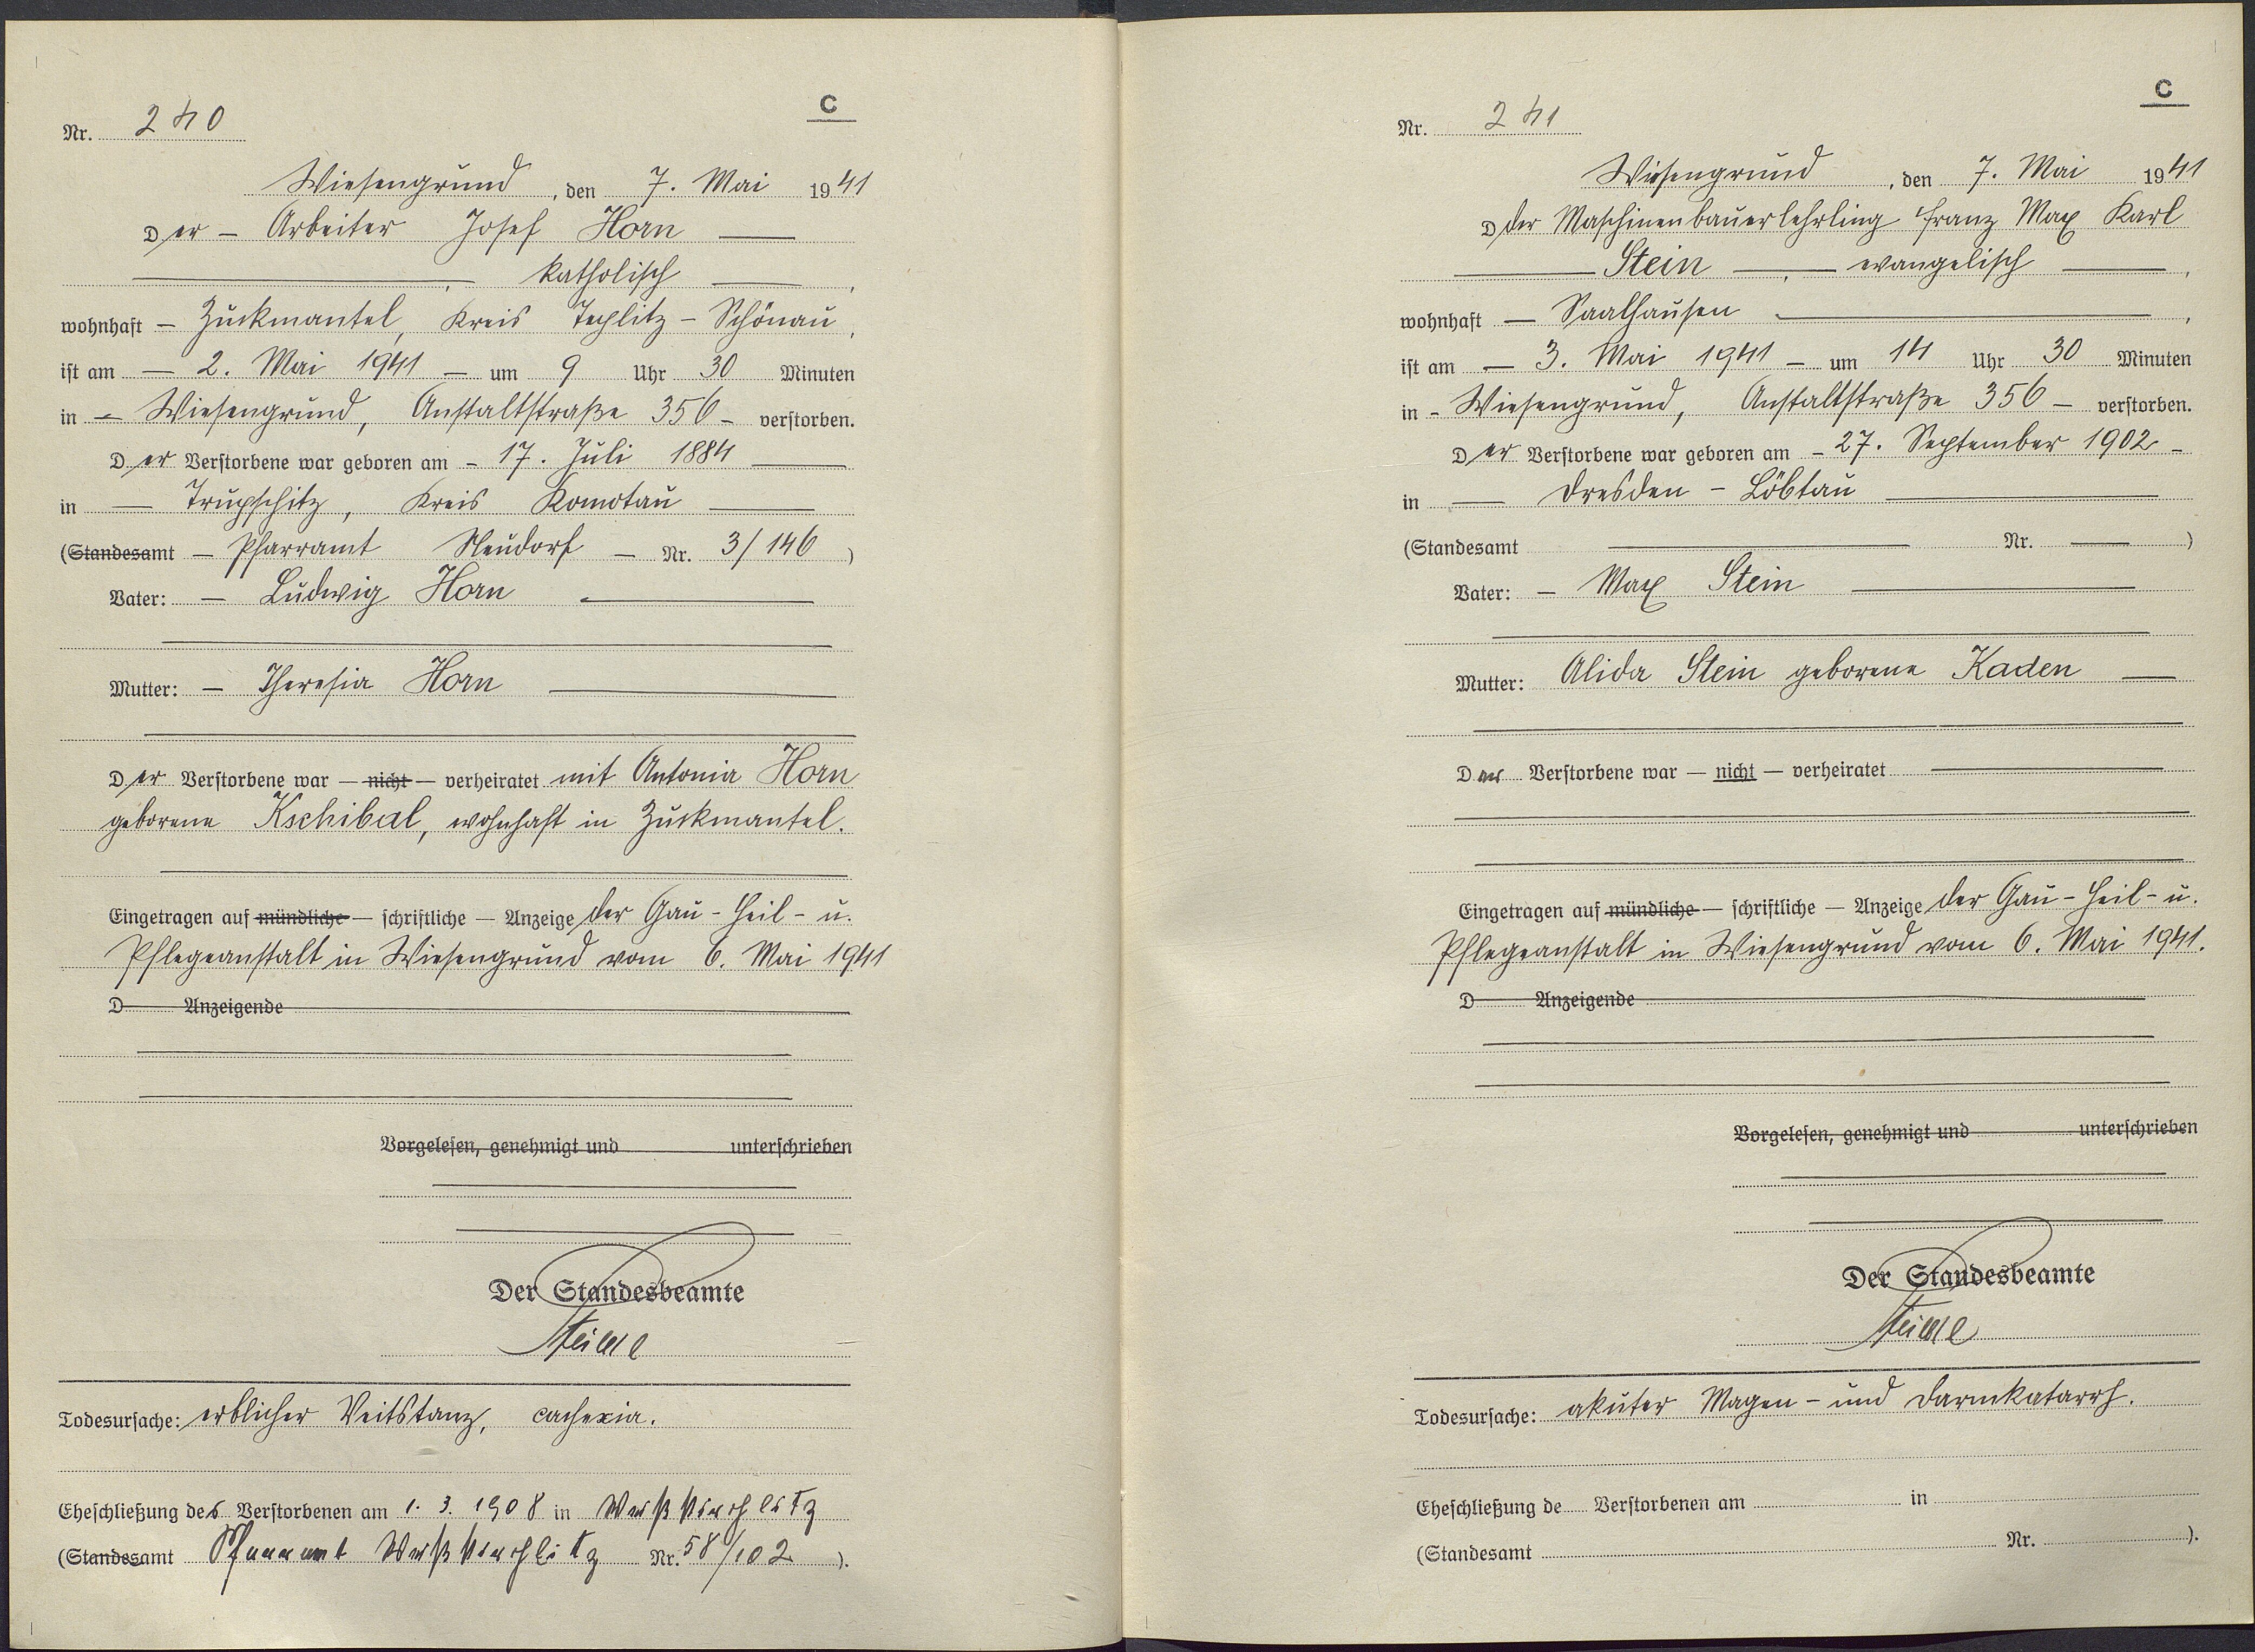 C
Nr. 240
Wiesengrund, den 7. Mai 1941
Der - Arbeiter Josef Horn —
—, katholisch —,
wohnhaft - Zuckmantel, Kreis Teplitz - Schönau,
ist am — 2. Mai 1941 — um 9 Uhr 30 Minuten
in - Wiesengrund, Anstaltstraße 356 - verstorben.
Der Verstorbene war geboren am - 17. Juli 1884 —
in — Trupschitz, Kreis Komotau —
(Standesamt - Pfarramt Neudorf - Nr. 3/146)
Vater: - Ludwig Horn —
Mutter: - Theresia Horn —
Der Verstorbene war — nicht — verheiratet mit Antonia Horn
geborene Kschibal, wohnhaft in Zuckmantel.
Eingetragen auf mündliche — schriftliche — Anzeige der Gau-Heil- u.
Pflegeanstalt in Wiesengrund vom 6. Mai 1941
D Anzeigende
Vorgelesen, genehmigt und unterschrieben
Der Standesbeamte
Todesursache: erblicher Veitstanz, cachexia.
Eheschließung des Verstorbenen am 1. 3. 1908 in Weißkirchlitz
(Standesamt Pfarramt Weißkirchlitz Nr. 58/102).
C
Nr. 241
Wiesengrund, den 7. Mai 1941
D der Maschinenbauerlehrling Franz Max Karl
— Stein —, — evangelisch —,
wohnhaft — Saalhausen —,
ist am — 3. Mai 1941 — um 14 Uhr 30 Minuten
in - Wiesengrund, Anstaltstraße 356 - verstorben.
Der Verstorbene war geboren am - 27. September 1902 -
in — Dresden - Löbtau —
(Standesamt — Nr. —)
Vater: - Max Stein —
Mutter: Alida Stein geborene Kaden —
Der Verstorbene war — nicht — verheiratet —
Eingetragen auf mündliche — schriftliche — Anzeige der Gau-Heil- u.
Pflegeanstalt in Wiesengrund vom 6. Mai 1941.
D Anzeigende
Vorgelesen, genehmigt und unterschrieben
Der Standesbeamte
Todesursache: akuter Magen- und Darmkatarrh.
Eheschließung de Verstorbenen am in
(Standesamt Nr. ).